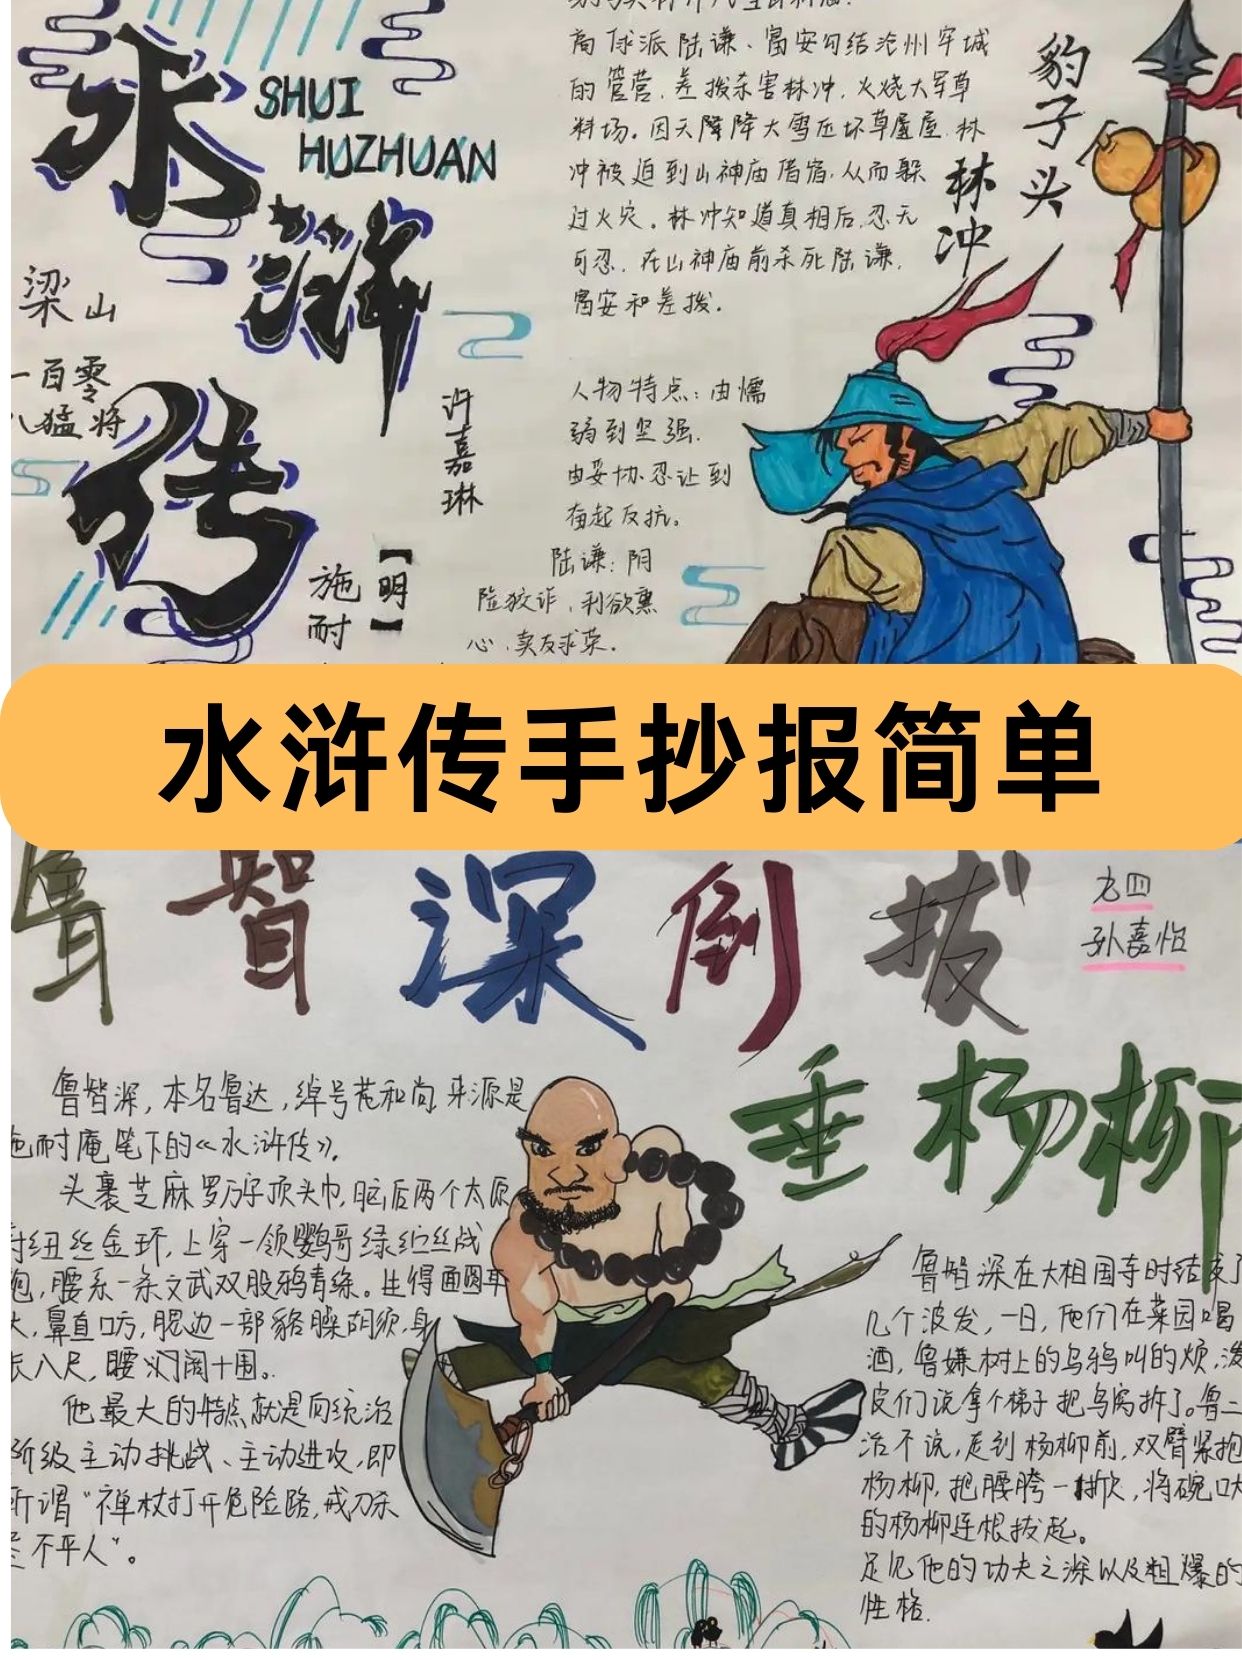 水
浒
传
SHUI
HUZHUAN
梁山
一百零
八猛将
许嘉琳
【明】
施耐
高俅派陆谦、富安勾结沧州牢城
的管营,差拨杀害林冲,火烧大军草
料场。因天降降大雪压坏草屋屋,林
冲被迫到山神庙借宿,从而躲
过火灾。林冲知道真相后,忍无
可忍,在山神庙前杀死陆谦,
富安和差拨。
豹子头
林冲
人物特点:由懦
弱到坚强.
由妥协忍让到
奋起反抗。
陆谦:阴
险狡诈,利欲熏
心,卖友求荣。
水浒传手抄报简单
鲁智深倒拔
垂杨柳
九四
孙嘉怡
鲁智深,本名鲁达,绰号花和尚 来源是
施耐庵笔下的《水浒传》。
头裹芝麻罗万字顶头巾,脑后两个太原
府纽丝金环,上穿一领鹦哥绿纻丝战
袍,腰系一条文武双股鸦青绦。生得面圆耳
大,鼻直口方,腮边一部貉䐗胡须,身
长八尺,腰阔十围。
他最大的特点就是向统治
阶级主动挑战、主动进攻,即
所谓“禅杖打开危险路,戒刀杀
不平人”。
鲁智深在大相国寺时结交了
几个泼皮,一日,他们在菜园喝
酒,鲁嫌树上的乌鸦叫的烦,泼
皮们说拿个梯子把鸟窝拆了。鲁二
话不说,走到杨柳前,双臂紧抱
杨柳,把腰胯一掀,将碗口大
的杨柳连根拔起。
足见他的功夫之深以及粗爆的
性格.